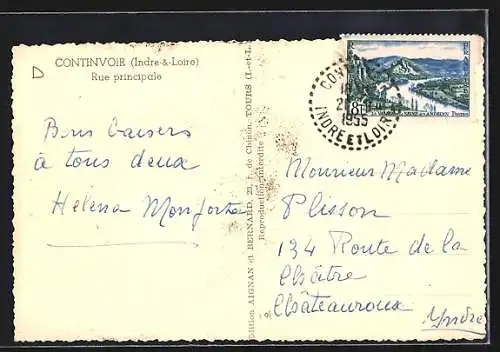 CONTINVOIR (Indre-&-Loire)
Rue principale
Bons baisers
à tous deux
Helena
AIGNAN et BERNARD, 23, r. de Chinon, TOURS (I.-et-L.
Reproduction interdite
1955
INDRE ET LOIRE
8F
Monsieur Madame
Plisson
134 Route de la
Châtre
Châteauroux
Indre